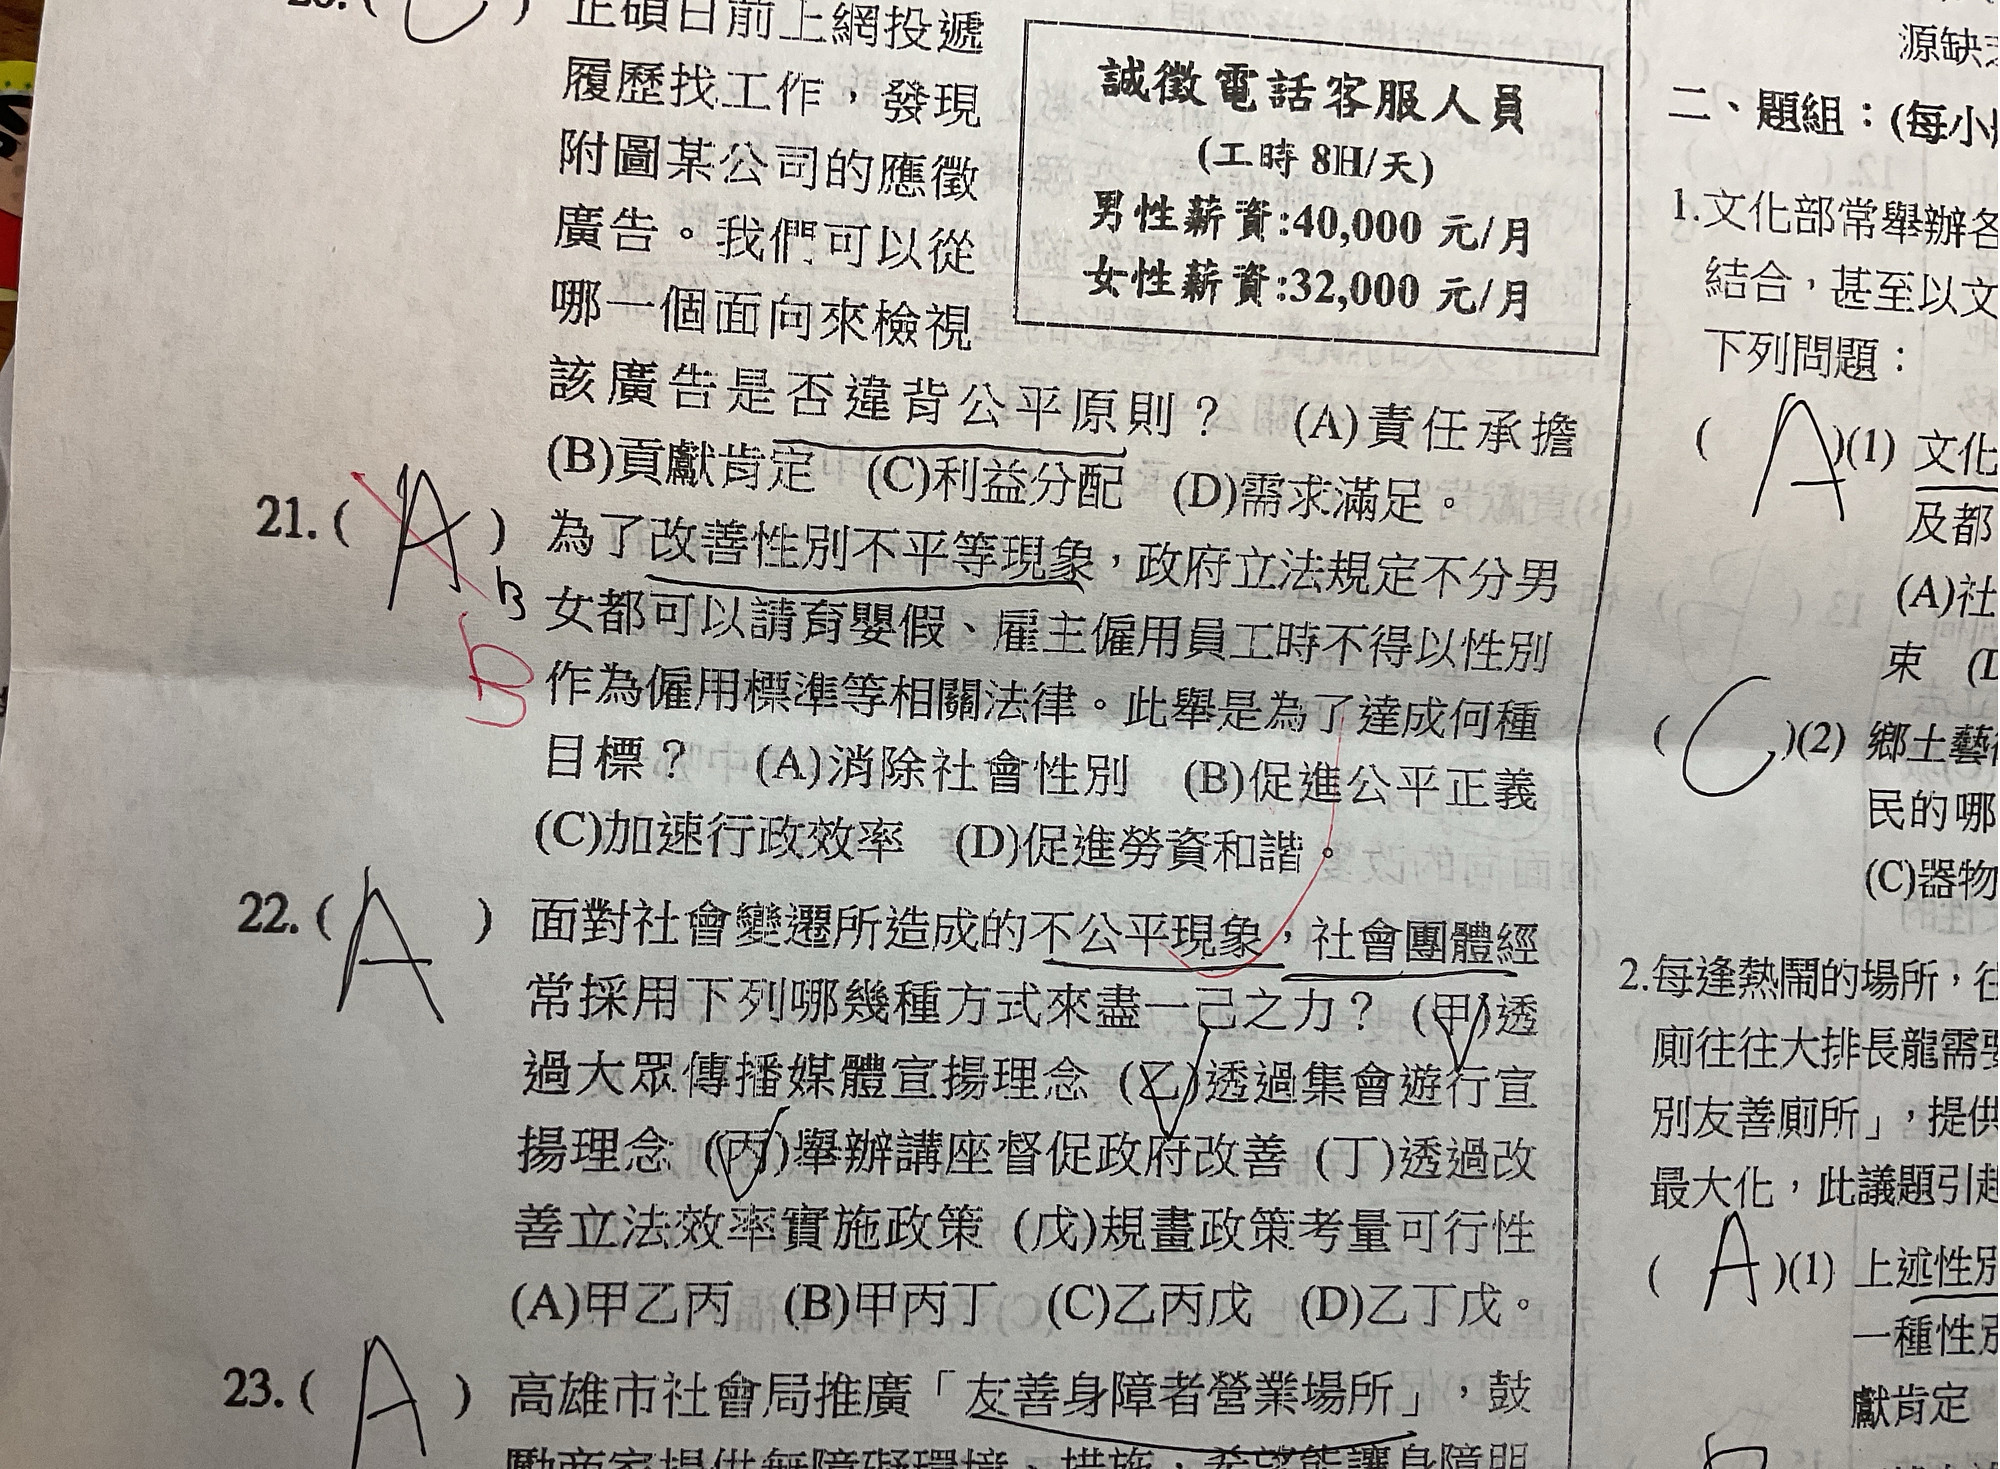 20.( C ) 正碩日前上網投遞
履歷找工作，發現
附圖某公司的應徵
廣告。我們可以從
哪一個面向來檢視
該廣告是否違背公平原則？ (A)責任承擔
(B)貢獻肯定 (C)利益分配 (D)需求滿足。
誠徵電話客服人員
(工時 8H/天)
男性薪資:40,000 元/月
女性薪資:32,000 元/月
21.( A ) 為了改善性別不平等現象，政府立法規定不分男
B
女都可以請育嬰假、雇主僱用員工時不得以性別
B
作為僱用標準等相關法律。此舉是為了達成何種
目標？ (A)消除社會性別 (B)促進公平正義
(C)加速行政效率 (D)促進勞資和諧。
22.( A ) 面對社會變遷所造成的不公平現象，社會團體經
常採用下列哪幾種方式來盡一己之力？ (甲)透
過大眾傳播媒體宣揚理念 (乙)透過集會遊行宣
揚理念 (丙)舉辦講座督促政府改善 (丁)透過改
善立法效率實施政策 (戊)規畫政策考量可行性
(A)甲乙丙 (B)甲丙丁 (C)乙丙戊 (D)乙丁戊。
23.( A ) 高雄市社會局推廣「友善身障者營業場所」，鼓
勵商家提供無障礙環境、措施，希望能讓身障朋
源缺
二、題組：(每小
1.文化部常舉辦各
結合，甚至以文
下列問題：
( A )(1) 文化
及都
(A)社
束 (D
( C )(2) 鄉土藝
民的哪
(C)器物
2.每逢熱鬧的場所，往
廁往往大排長龍需要
別友善廁所」，提供
最大化，此議題引起
( A )(1) 上述性別
一種性別
獻肯定